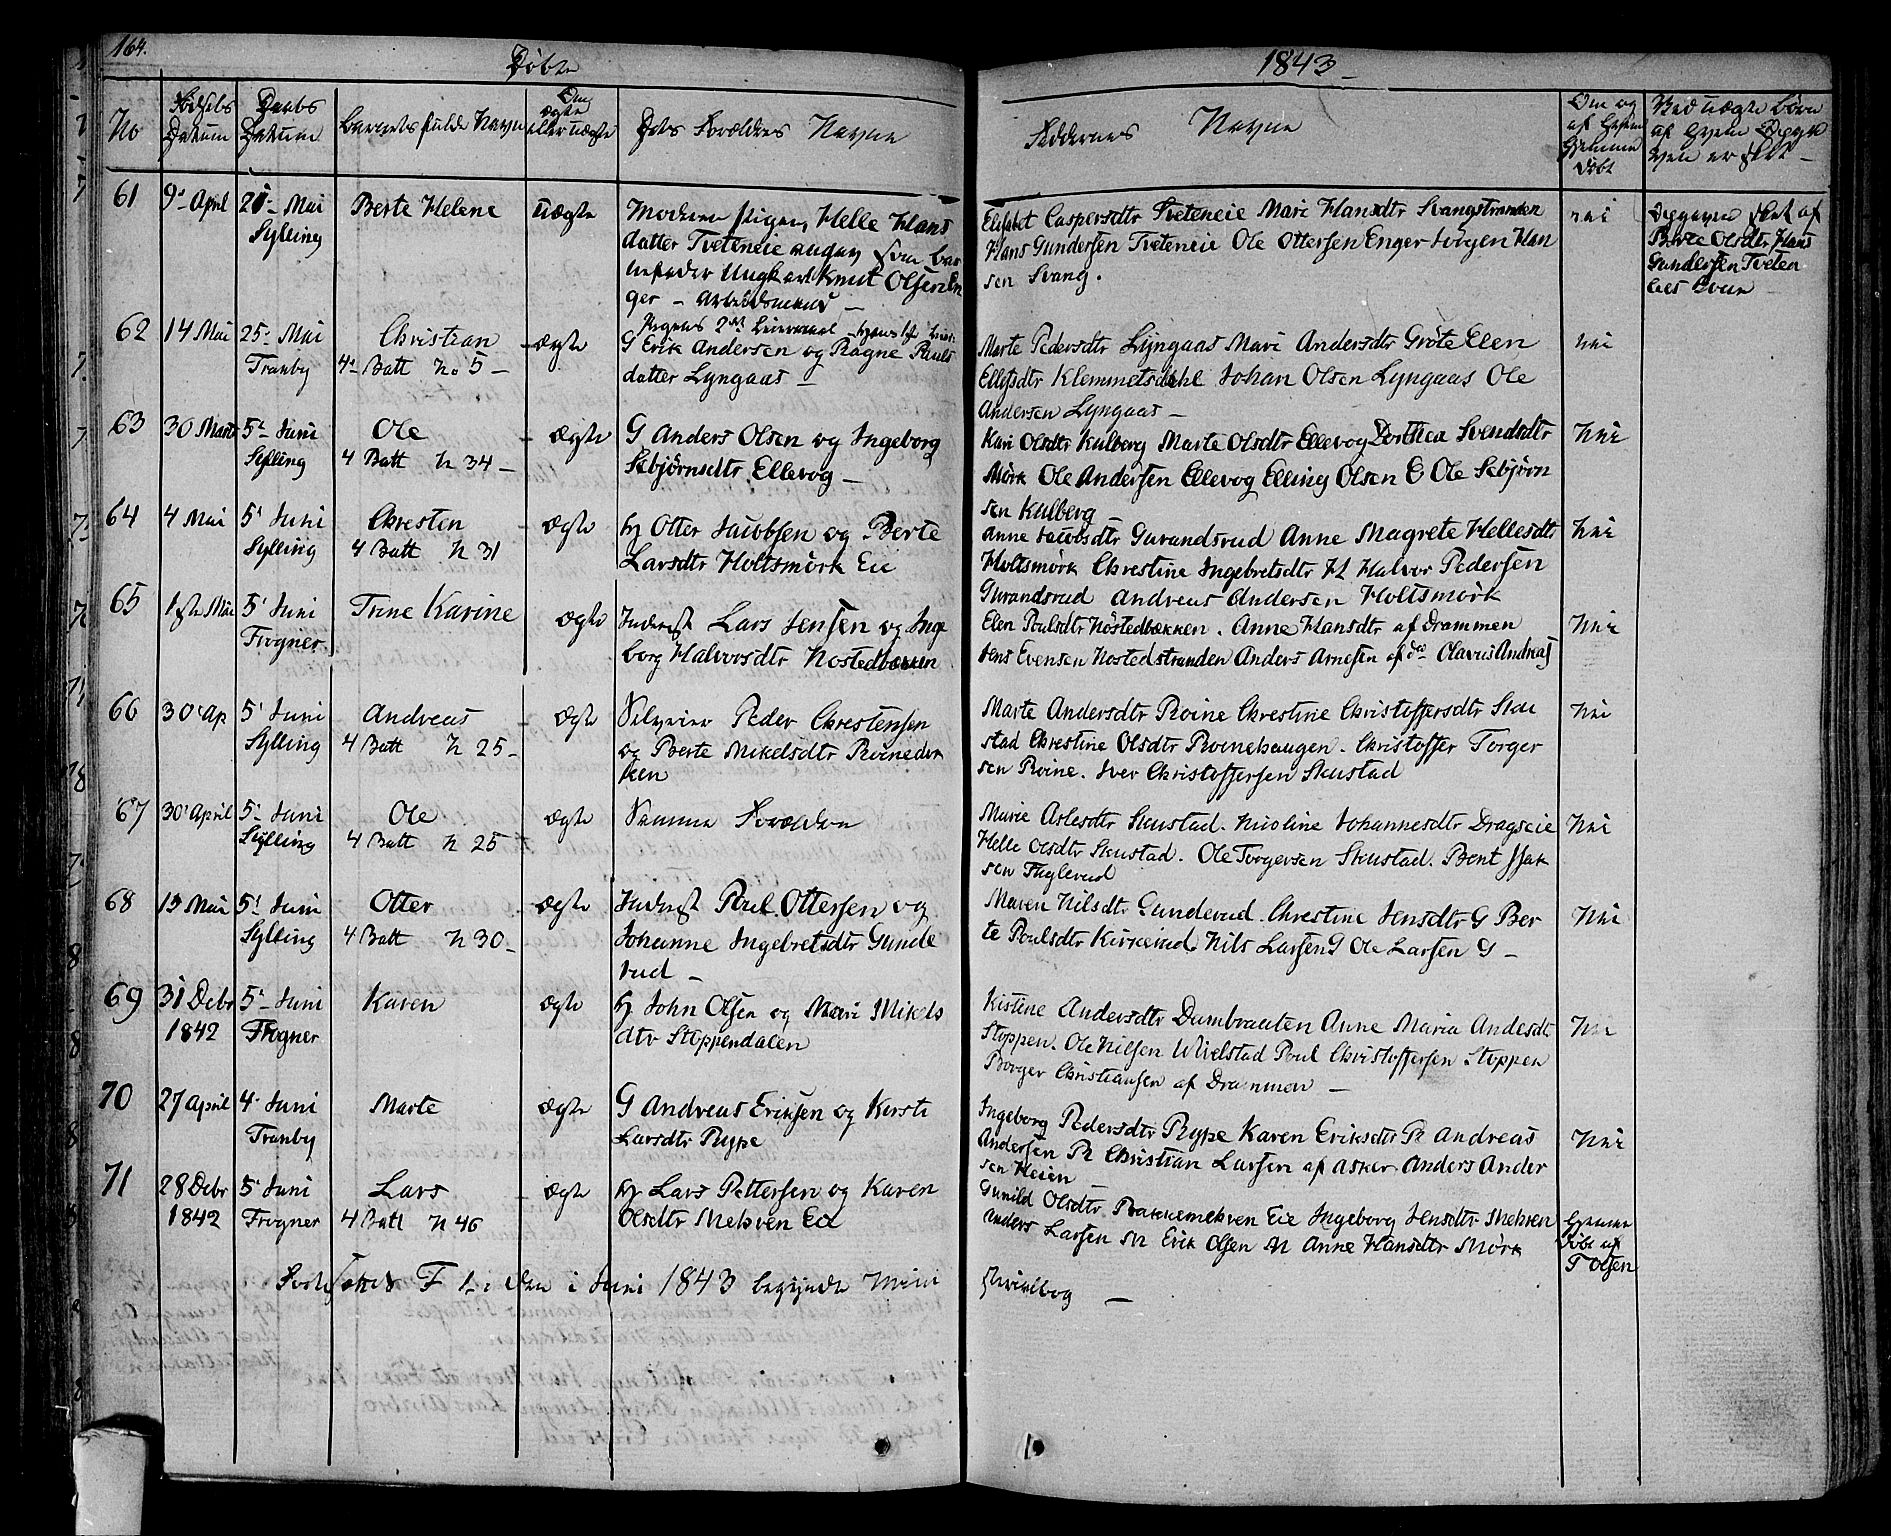 164.
Döbte
1843
No
Födsels Datum
Daabs Datum
Barnets fulde Navn
Om ægte eller uægte
Dets Forældres Navne
Faddernes Navne
Om og af hvem hjemme döbt
Ved uægte Börn af hvem Begg
61 9. April 21. Mai Sylling Berte Helene uægte
Moderen Pigen Helle Hans
datter Tveteneie som Bar
nefader Ungkarl Knut Olsen En
ger - Arbeidsmand -
Elisabet Caspersdtr Tveteneie Mari Hansdtr Svangstranden
Hans Gundersen Tveteneie Ole Ottersen Enger Jörgen Han
sen Svang.
nei
af
Berte Olsdtr Hans
Gundersen Tveten
62 14 Mai 25. Mai Tranby Christian 4. Batt No 5 - ægte
G Erik Andersen og Ragne Pauls
datter Lyngaas -
Marte Pedersdtr Lyngaas Mari Andersdtr Gröte Elen
Ellefsdtr Klemmetsdahl Johan Olsen Lyngaas Ole
Andersen Lyngaas -
nei
63 30 Marts 5. Juni Sylling Ole 4 Batt N 34 - ægte
G Anders Olsen og Ingeborg
Esbjørnsdtr Ellevog -
Kari Olsdtr Kulberg Marte Olsdtr Ellevog Dorthea Svendsdtr
Mörk Ole Andersen Ellevog Elling Olsen E Ole Esbjörn
sen Kulberg -
Nei
64 4 Mai 5. Juni Sylling Chresten 4 Batt N 31 ægte
Hj Otter Jacobsen og Berte
Larsdtr Holtsmörk Eie
Anne Jacobsdtr Gurandsrud Anne Magrete Hellesdtr
Holtsmörk Chrestine Ingebretsdtr H Halvor Pedersen
Gurandsrud Andreas Andersen Holtsmörk
Nei
65 1ste Mai 5. Juni Frogner Trine Karine ægte
Inderst Lars Jensen og Inge
borg Halvorsdtr Nöstedbækken
Elen Poulsdtr Nöstedbækken. Anne Hansdtr af Drammen
Jens Evensen Nöstedstranden Anders Arnesen af do Olavus Andreas
Nei
66 30 Ap 5. Juni Sylling Andreas 4 Batt N 25 - ægte
Selveier Peder Chrestensen
og Berte Mikelsdtr Roine
Marte Andersdtr Roine Chrestine Christoffersdtr Sku
stad Chrestine Olsdtr Roinehaugen. Christoffer Torger
sen Roine. Iver Christoffersen Skustad
Nei
67 30 April 5. Juni Sylling Ole 4 Batt N 25 ægte
Samme Forældre
Marie Aslesdtr Skustad. Nicoline Johannesdtr Dragseie
Helle Olsdtr Skustad. Ole Torgersen Skustad. Bent Isak
sen Fuglerud
Nei
68 15 Mai 5. Juni Sylling Otter 4 Batt N 30 - ægte
Inderst Poul Ottersen og
Johanne Ingebretsdtr Gunde
rud -
Maren Nilsdtr Gunderud. Chrestine Jensdtr G Ber
te Poulsdtr Kirkerud. Nils Larsen G Ole Larsen G -
Nei
69 31 Debr 1842 5. Juni Frogner Karen ægte
Hj John Olsen og Mari Mikels
dtr Stoppendalen
Kistine Andersdtr Dambraaten Anne Maria Andersdt
Stoppen. Ole Nilsen Wivelstad Poul Christoffersen Stoppen
Borger Christiansen af Drammen -
Nei
70 27 April 4. Juni Tranby Marte ægte
G Andreas Eriksen og Kersti
Larsdtr Rype
Ingeborg Pedersdtr Rype Karen Eriksdtr R Andreas
Andersen R Christian Larsen af Asker Anders Ander
sen Heien
Nei
71 28 Debr 1842 5. Juni Frogner Lars 4 Batt N 46 ægte
Hj Lars Pettersen og Karen
Olsdtr Mehren Eie
Gunild Olsdtr. Bakkemehren Eie Ingeborg Jensdtr Mehren
Anders Larsen M Erik Olsen M Anne Hansdtr Mörk
Hjemme
döbt af
T Olsen
i Juni 1843 begyndte Mini
sterialbog -